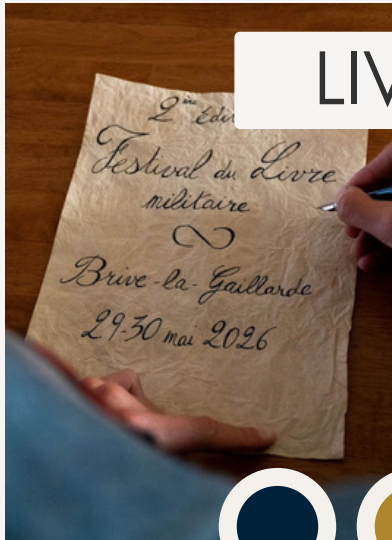 LIV
2ème Édi
Festival du Livre
militaire
Brive-la-Gaillarde
29-30 mai 2026